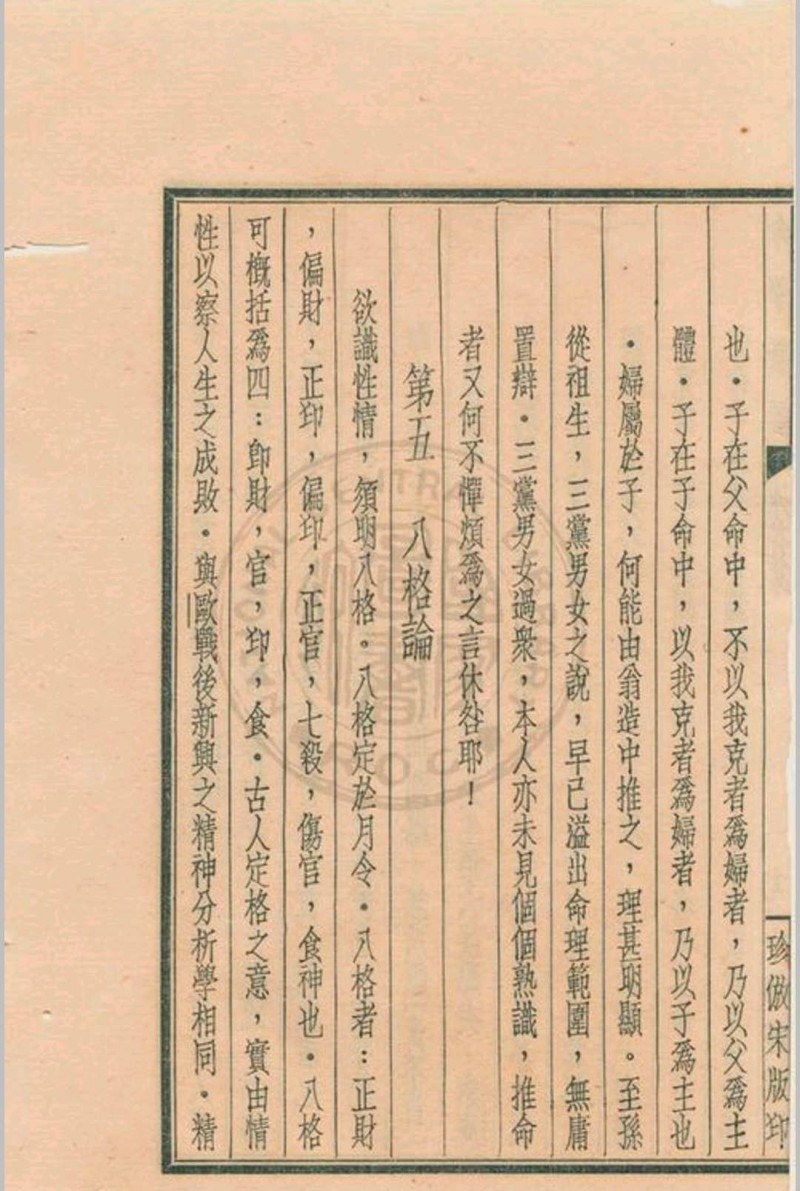 珍倣宋版印
也・子在父命中，不以我克者爲婦者，乃以父爲主
體・子在子命中，以我克者爲婦者，乃以子爲主也
・婦屬於子，何能由翁造中推之，理甚明顯。至孫
從祖生，三黨男女之說，早已溢出命理範圍，無庸
置辯・三黨男女過衆，本人亦未見個個熟識，推命
者又何不憚煩爲之言休咎耶！
第五 八格論
欲識性情，須明八格。八格定於月令・八格者：正財
，偏財，正印，偏印，正官，七殺，傷官，食神也・八格
可概括爲四：卽財，官，印，食・古人定格之意，實由情
性以察人生之成敗・與歐戰後新興之精神分析學相同・精